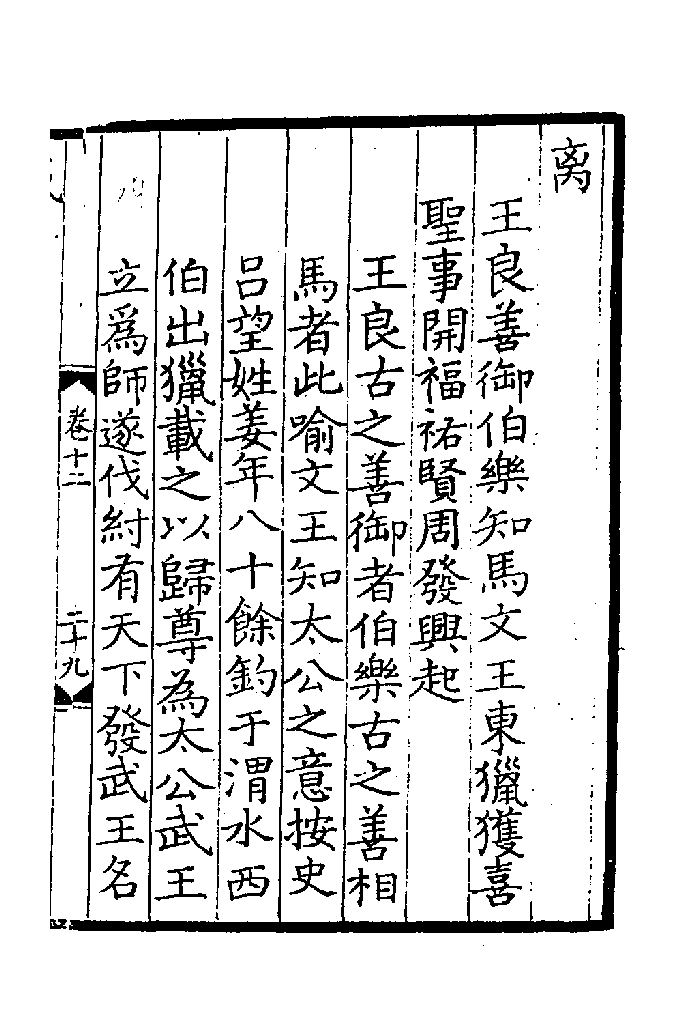 离
王良善御伯樂知馬文王東獵獲喜
聖事開福祐賢周發興起
王良古之善御者伯樂古之善相
馬者此喻文王知太公之意按史
呂望姓姜年八十餘釣于渭水西
伯出獵載之以歸尊為太公武王
立爲師遂伐紂有天下發武王名
卷十二
二十九